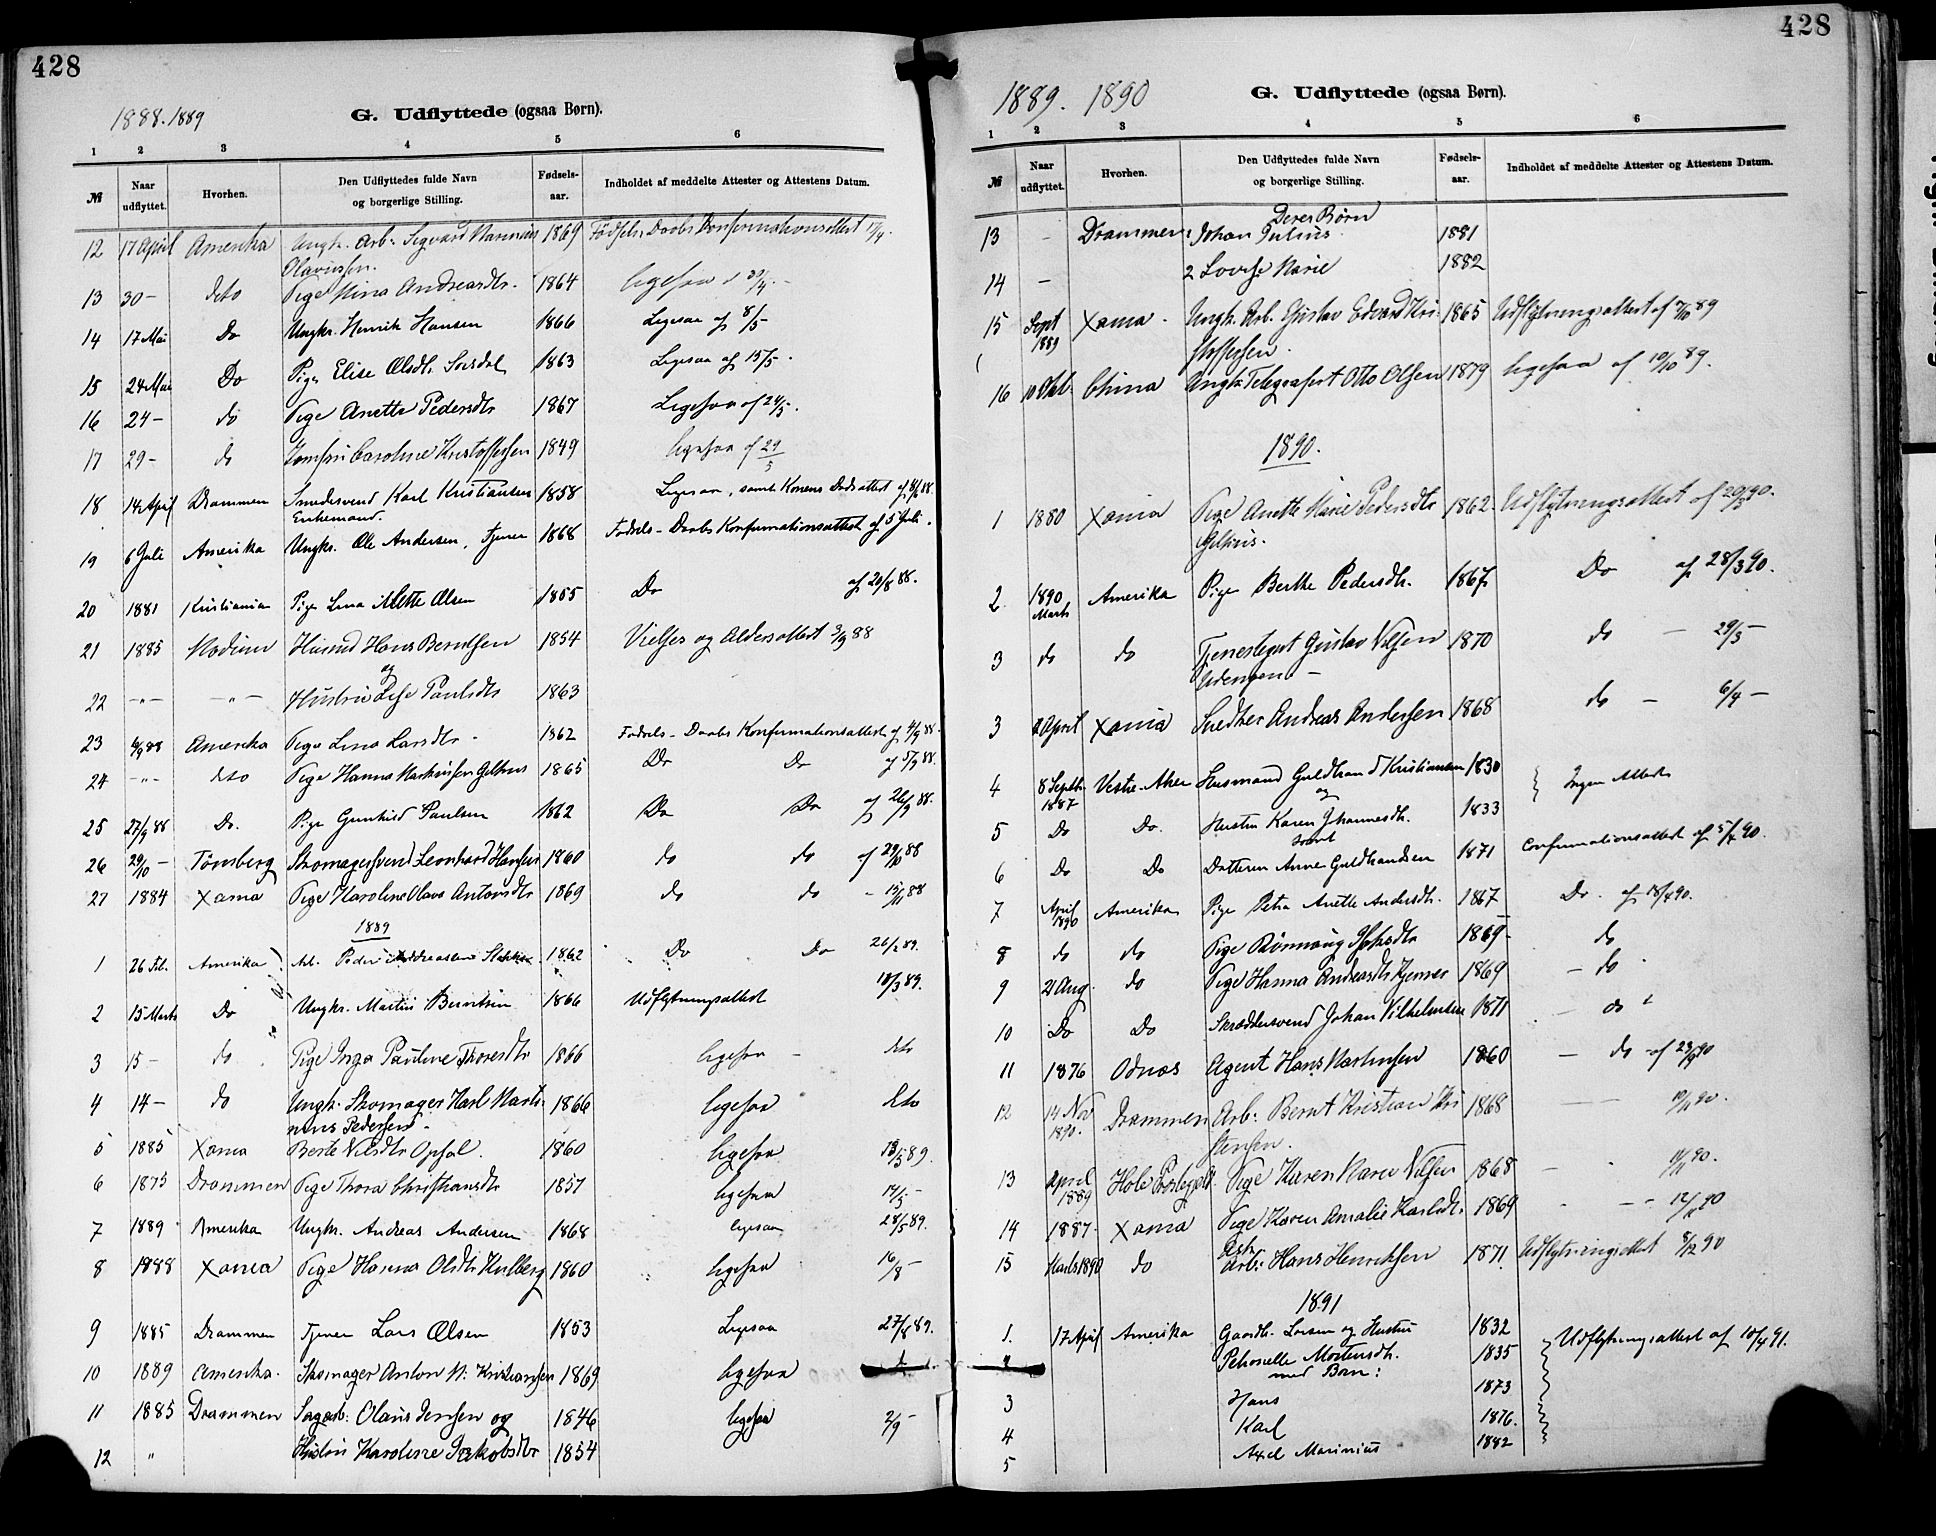 428
1888. 1889
G. Udflyttede (ogsaa Børn).
1 2 3 4 5 6
№ Naar udflyttet. Hvorhen. Den Udflyttedes fulde Navn og borgerlige Stilling. Fødsels-aar. Indholdet af meddelte Attester og Attestens Datum.
12 17 April Amerika Ungk. Arb. Sigvard Marinius 1869 Fødsels, Daabs Konfirmationsattest 17/4.
Olavussen.
13 30 – deto Pige Mina Andreasdtr. 1864 ligesaa 30/4. –
14 17 Mai Do Ungkr. Henrik Hansen 1866 Ligesaa af 8/5
15 24 Mai Do Pige Elise Olsdtr. 1863 Ligesaa af 15/5.
16 24 – do Pige Anette Pedersdtr 1867 Ligesaa af 24/5.
17 29 – do Jomfru Caroline Kristoffersen 1849 ligesaa af 29/5
18 14 April Drammen Smedesvend Karl Kristiansen 1858 Ligesaa, samt Konens Dødsattest af 88.
Enkemand.
19 6 Juli Amerika Ungkr. Ole Andersen, Tjener 1868 Fødsels- Daabs Konfirmationsattest af 5 Juli.
20 1881 Kristiania Pige Lina Mette Olsen 1855 Do af 20/8 88.
21 1885 Modum Husmd Hans Berntsen 1854 Vielses og Aldersattest 3/9 88
og
22 –"– –"– Hustru Lise Paulsdtr 1863
23 6/9 88 Amerika Pige Lina Larsdtr – 1862 Fødsels- Daabs Konfirmationsattest af 4/9 88.
24 –"– deto Pige Hanna Martinsen Gilhus 1865 Do Do af 5/9 88.
25 27/9 88 Do. Pige Gunhild Paulsen 1862 Do Do af 26/9 88.
26 29/10 – Tønsberg Skomagersvend Leonhard Hansen 1860 do do af 29/10 88
27 1884 Xania Pige Karoline Olava Antonsdtr 1869 do do – 15/11 88
1889
1 26 Feb. Amerika Arb. Peder Andreassen 1862 Do Do 26/2 89.
2 15 Marts Do Ungkr. Martin Berntsen 1866 Udflytningsattest 18/3 89.
3 15 – do Pige Inga Pauline Thoresdtr 1866 ligesaa – deto
4 14 – do Ungk. Skomager Karl Marti- 1866 ligesaa deto
nius Pedersen.
5 1885 Xania Berte Nilsdtr Opsal. 1860 ligesaa 13/5 89.
6 1875 Drammen Pige Thora Christiansdtr 1857 ligesaa 14/5 –
7 1889 Amerika Ungkr. Andreas Andersen 1868 ligesaa 28/5 89.
8 1888 Xania Pige Hanna Olsdtr Hulberg 1860 ligesaa 16/8 –
9 1885 Drammen Tjener Lars Olsen 1853 Ligesaa 27/8 89.
10 1889 Amerika. Skomager Anton M. Kristiansen 1869 ligesaa
11 1885 Drammen Sagarb: Olaus Jensen og 1846 ligesaa 2/9 –
12 " Hustru Karoline Jakobsdtr 1854
428
1889. 1890
G. Udflyttede (ogsaa Børn).
1 2 3 4 5 6
№ Naar udflyttet. Hvorhen. Den Udflyttedes fulde Navn og borgerlige Stilling. Fødsels-aar. Indholdet af meddelte Attester og Attestens Datum.
Deres Børn
13 – Drammen 1 Johan Julius 1881
14 – 2 Lovise Marie 1882
15 Sept 1889 Xania – Ungk. Arb. Gustav Edvard Kri- 1865 Udflytningsattest af 89
stoffersen.
16 10 Okt. China Ungk. Telegrafist Otto Olsen 1879 ligesaa af 10/10 89.
1890.
1 1880 Xania Pige Anette Marie Pedersdtr 1862. Udflytningsattest af 20/3 90.
Gilhus.
2 1890 Marts Amerika Pige Berthe Pedersdtr. 1867 Do af 28/3 90.
3 do do Tjenestegut Gustav Nilsen 1870 do – 29/3 –
3 2 April Xania Snedker Andreas Andersen 1868 do – 6/4 –
4 8 Septbr. 1887 Vestre Aker Husmand Guldbrand Kristiansen 1830 Ingen Attest
og
5 Do Do. Hustru Karen Johannesdtr. 1833
samt
6 Do Do Datteren Anne Guldbrandsen 1871 Confirmationsattest af 5/4 90.
7 April 1890 Amerika Pige Petra Anette Andersdtr. 1867 Do. af 18/4 90.
8 do do Pige Rønnaug 1869 – do
9 21 Aug. do Pige Hanna Andreasdtr 1869 – do
10 Do Do Skræddersvend Johan Vilhelmsen 1871 – do
11 1876 Odnæs Agent Hans Martinsen 1860 – do – af 23/9 90
12 14 Nov 1890. Drammen Arb: Bernt Kristian Kri- 1868 10/11 90.
stensen.
13 April 1889 Hole Præstegjæld. Pige Karen Marie Nilsen 1868 11/11 90.
14 1887 – Xania Pige Karen Amalie Karlsdtr. 1869 12/11 90
15 Marts 1890 do Arb: Hans Henriksen 1871. Udflytningsattest 8/12 90
1891
1. 17 April Amerika Gaardbr. Larsen og Hustru 1832 Udflytningsattest af 10/4 91.
2 Petronelle Mortensdtr. 1835
med Børn:
3 Hans 1873
4 Karl 1876.
5 Axel Marinius 1882